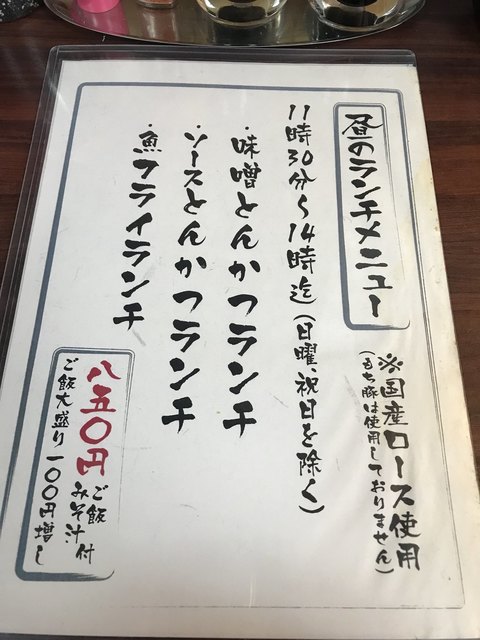 昼のランチメニュー
※国産ロース使用
(もち豚は使用しておりません)
11時30分〜14時迄(日曜、祝日を除く)
・味噌とんかつランチ
・ソースとんかつランチ
・魚フライランチ
八五〇円
ご飯
みそ汁
付
ご飯大盛り一〇〇円増し